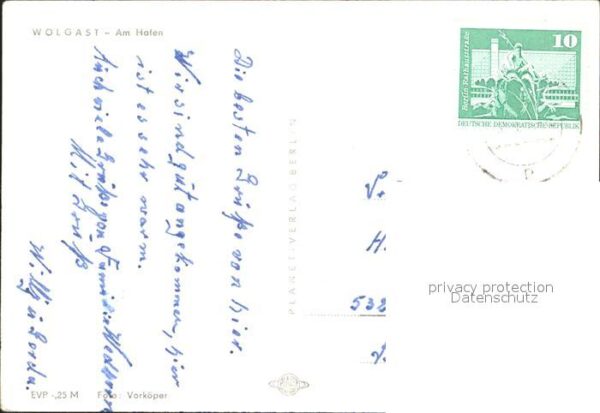 WOLGAST - Am Hafen
Die besten Grüße von hier.
Wir sind gut angekommen, hier
ist es sehr warm.
Auch viele Grüße von Familie
Mit Gruß
Willy u. Gerda.
EVP -,25 M Foto: Vorköper
PLANET-VERLAG BERLIN
10
Berlin-Rathausstraße
DEUTSCHE DEMOKRATISCHE REPUBLIK
H.
532
privacy protection
Datenschutz